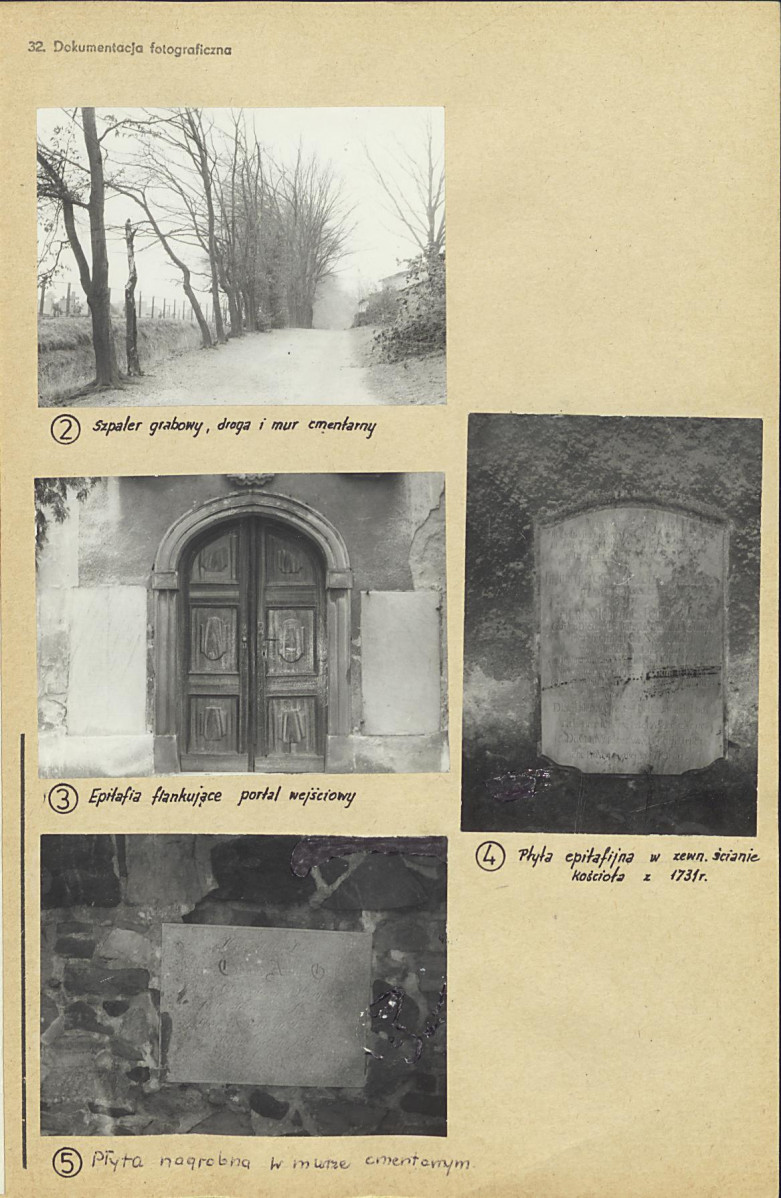 32. Dokumentacja fotograficzna
2 Szpaler grabowy, droga i mur cmentarny
3 Epitafia flankujące portal wejściowy
4 Płyta epitafijna w zewn. ścianie
kościoła z 1731r.
5 Płyta nagrobna w murze cmentarnym.